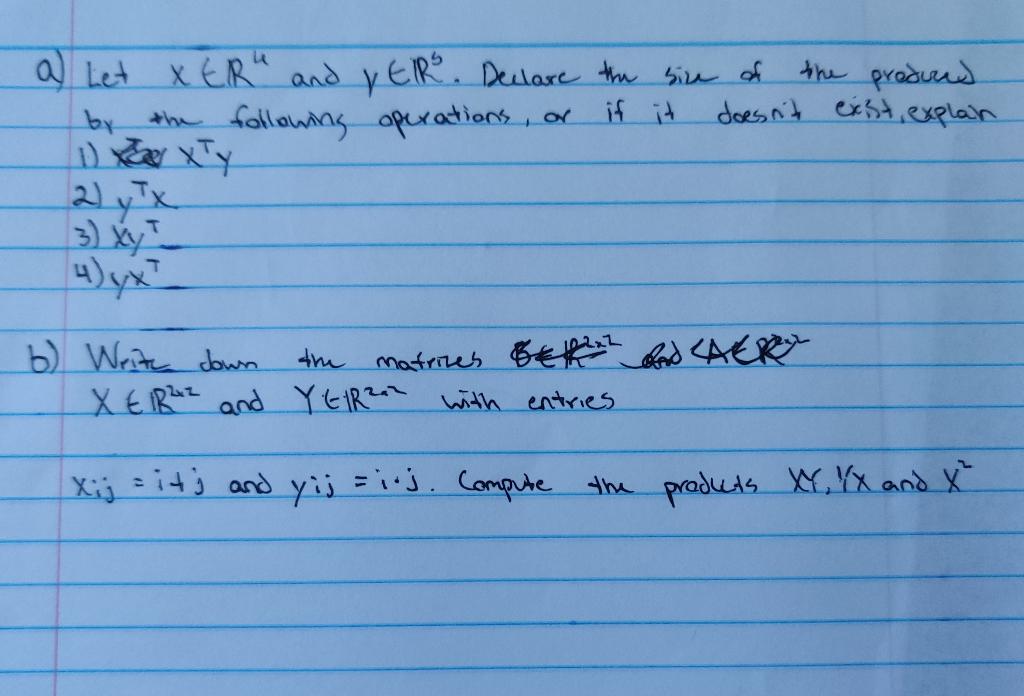 a) Let x ∈ ℝ⁴ and y ∈ ℝ⁵. Declare the size of the produced
by the following operations, or if it doesn't exist, explain
1) xᵀy
2) yᵀx
3) xyᵀ
4) yxᵀ
b) Write down the matrizes
X ∈ ℝ²ˣ² and Y ∈ ℝ²ˣ² with entries
xij = i+j and yij = i·j. Compute the products XY, YX and X²